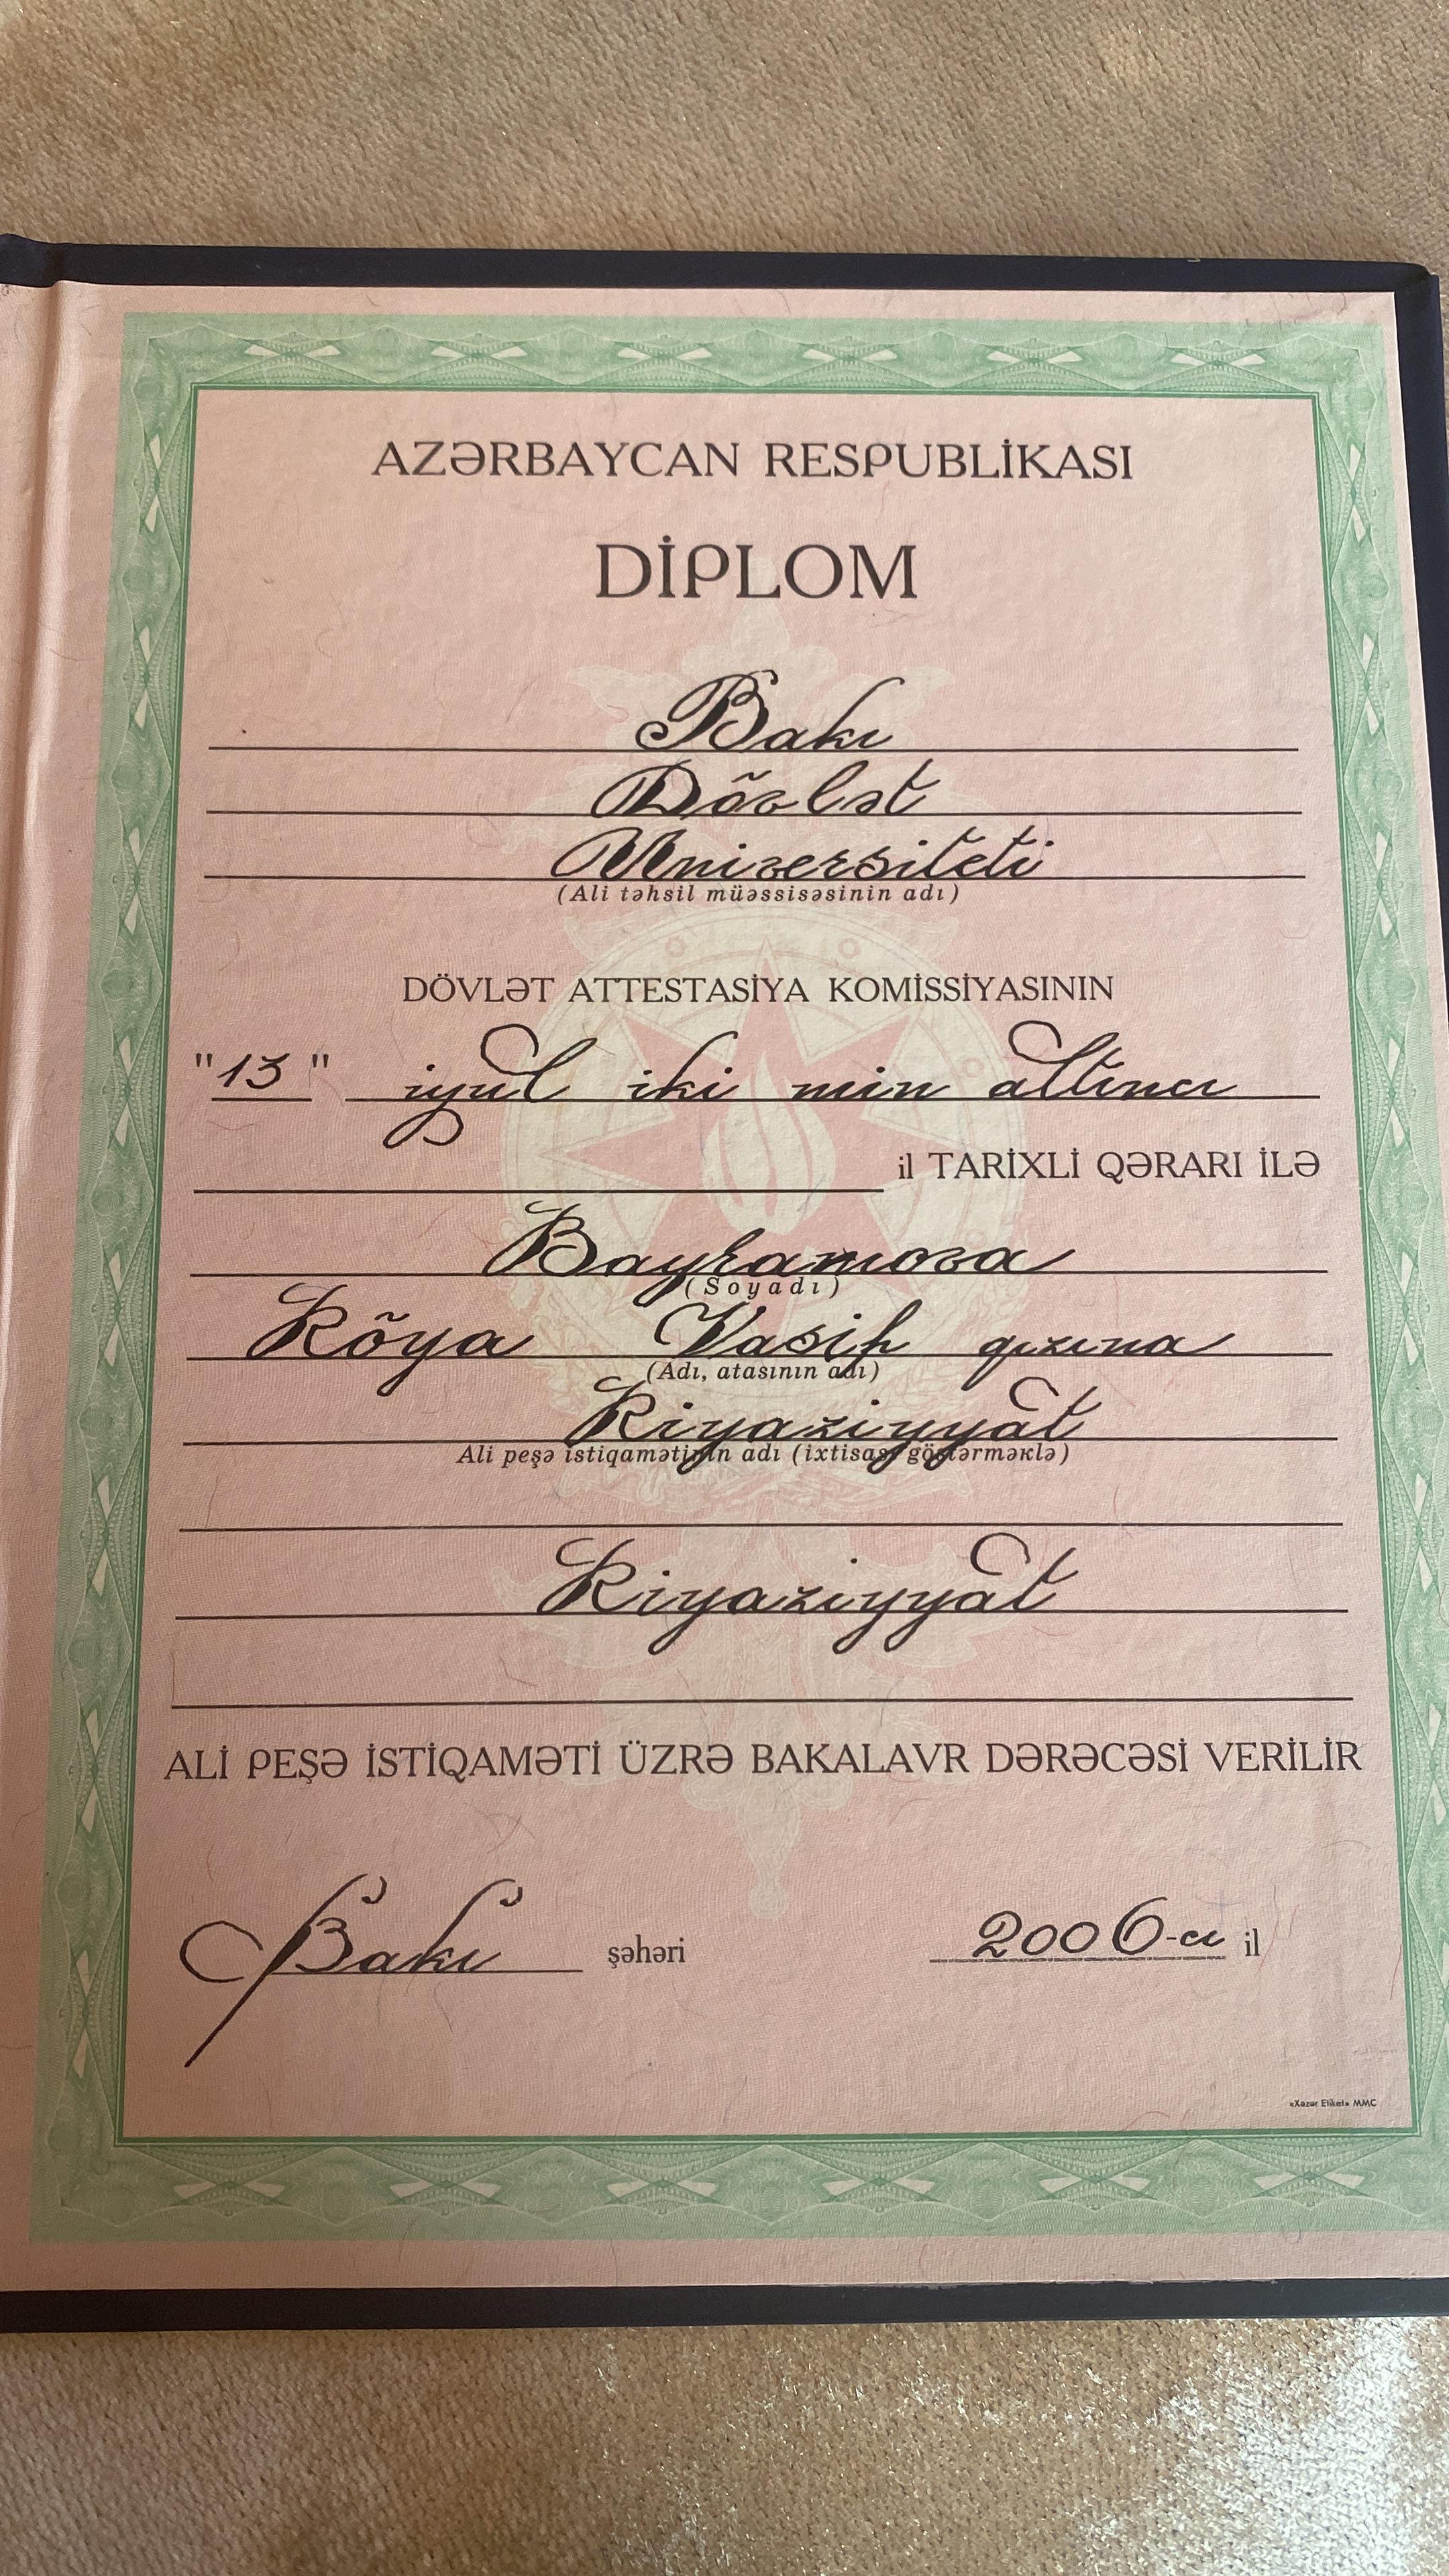 AZƏRBAYCAN RESPUBLİKASI
DİPLOM
Bakı
Dövlət
Universiteti
(Ali təhsil müəssisəsinin adı)
DÖVLƏT ATTESTASİYA KOMİSSİYASININ
"13" iyul iki min altıncı
il TARİXLİ QƏRARI İLƏ
Bayramova
(Soyadı)
Röya Vasif qızına
(Adı, atasının adı)
Riyaziyyat
Ali peşə istiqamətinin adı (ixtisası göstərməklə)
Riyaziyyat
ALİ PEŞƏ İSTİQAMƏTİ ÜZRƏ BAKALAVR DƏRƏCƏSİ VERİLİR
Bakı şəhəri 2006-cı il
«Xəzər Etiket» MMC